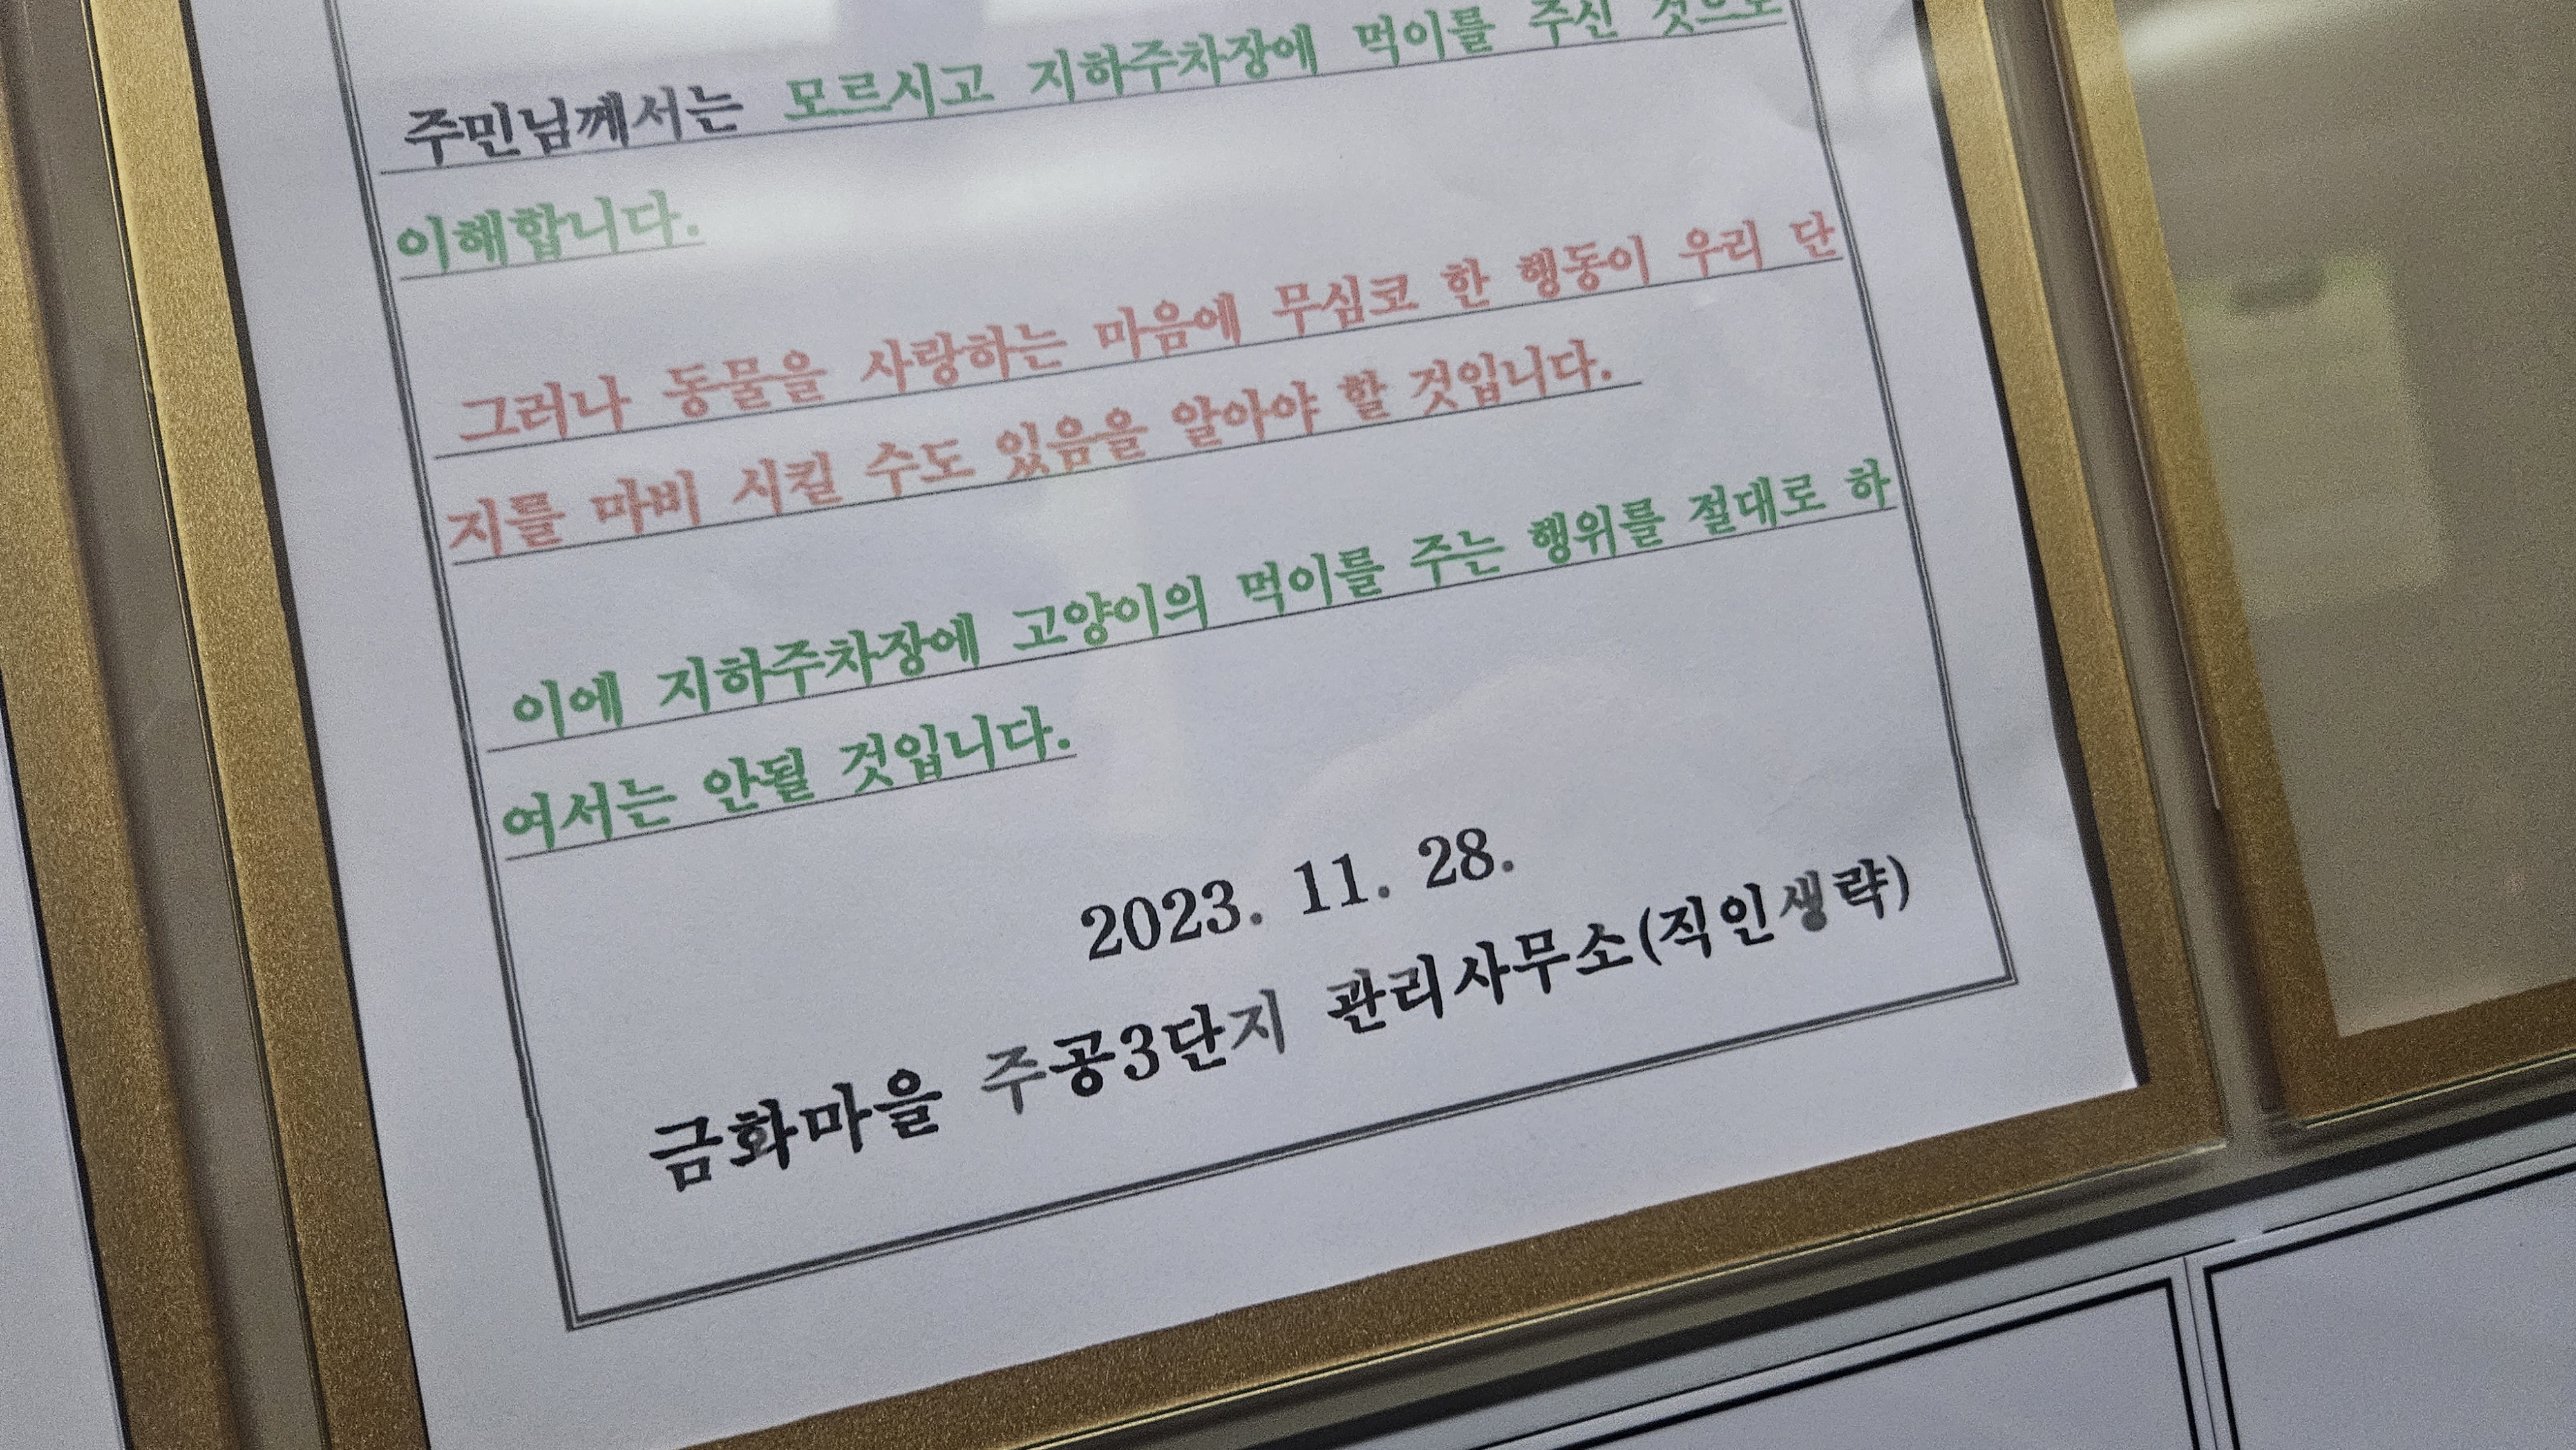 주민님께서는 모르시고 지하주차장에 먹이를 주신 것으로
이해합니다.
그러나 동물을 사랑하는 마음에 무심코 한 행동이 우리 단
지를 마비 시킬 수도 있음을 알아야 할 것입니다.
이에 지하주차장에 고양이의 먹이를 주는 행위를 절대로 하
여서는 안될 것입니다.
2023. 11. 28.
금화마을 주공3단지 관리사무소(직인생략)